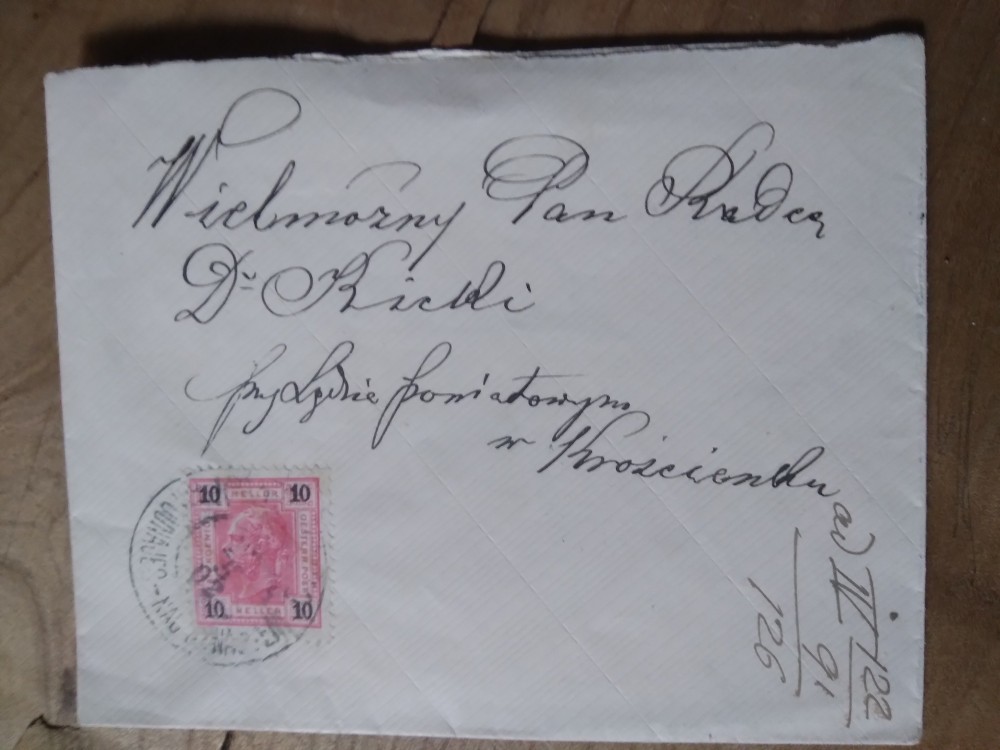 Wielmożny Pan Radca
Dr Kicki
przy Sądzie powiatowym
w Krościenku
10 HELLER 10
10 HELLER 10
ad IV 122
91
126